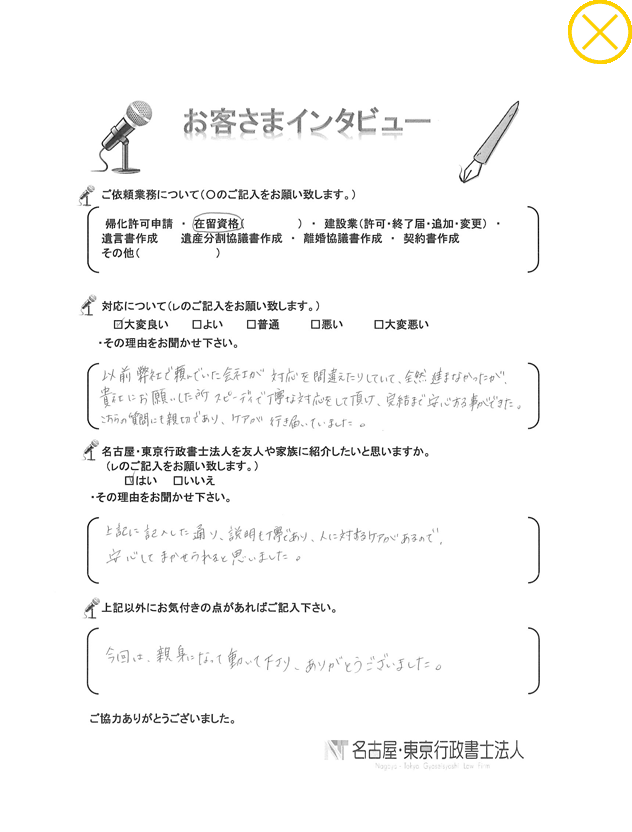 お客さまインタビュー
ご依頼業務について（〇のご記入をお願い致します。）
帰化許可申請 ・ 在留資格（　　　　） ・ 建設業（許可・終了届・追加・変更） ・
遺言書作成　遺産分割協議書作成 ・ 離婚協議書作成 ・ 契約書作成
その他（　　　　　　）
対応について（レのご記入をお願い致します。）
☑大変良い　□よい　□普通　□悪い　□大変悪い
・その理由をお聞かせ下さい。
以前弊社で頼んでいた会社が対応を間違えたりしていて、全然進まなかったが、
貴社にお願いした所スピーディで丁寧な対応をして頂け、完結まで安心する事ができた。
こちらの質問にも親切であり、ケアが行き届いていました。
名古屋・東京行政書士法人を友人や家族に紹介したいと思いますか。
（レのご記入をお願い致します。）
☑はい　□いいえ
・その理由をお聞かせ下さい。
上記に記入した通り、説明も丁寧であり、人に対するケアがあるので、
安心してまかせられると思いました。
上記以外にお気付きの点があればご記入下さい。
今回は、親身になって動いて下さり、ありがとうございました。
ご協力ありがとうございました。
名古屋・東京行政書士法人
Nagoya - Tokyo Gyoseishoshi Law Firm